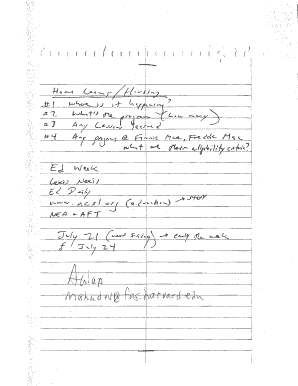 Home Loans / Housing
#1 Where is it happening?
#2 What's the program (how many)
#3 Any Lessons learned
#4 Any programs @ Fannie Mae, Freddie Mac
what are their eligibility criteria?
Ed Week
Lexis Nexis
Ed Daily
www.ncsl.org (education) →
NEA + AFT
July 21 (next Friday) → early the week
of July 24
mahadev@fas.harvard.edu